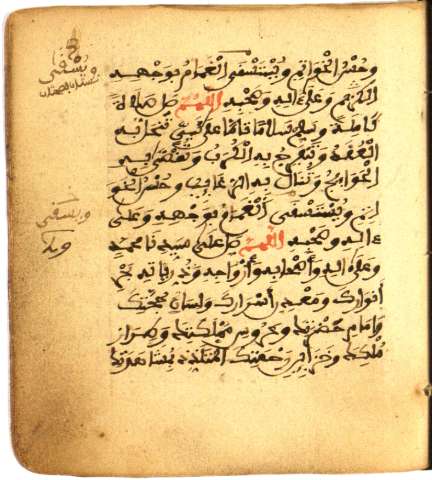 وحسن الخواتم ويستسقى الغمام بوجهه
الكريم وعلى اله وصحبه اللهم صل صلاة
كاملة وسلم سلاما تاما على نبي تنحل به
العقد وتنفرج به الكرب وتقضى به
الحوايج وتنال به الرغايب وحسن الخو
اتم ويستسقى الغمام بوجهه وعلى
ءاله وصحبه اللهم صل على سيدنا محمد
وعلى اله وأصحابه وأزواجه وذرياته بحر
أنوارك ومعدن أسرارك ولسان حجتك
وإمام حضرتك وعروس مملكتك وطراز
ملكك وخزاين رحمتك المتلذذ بمشاهدتك